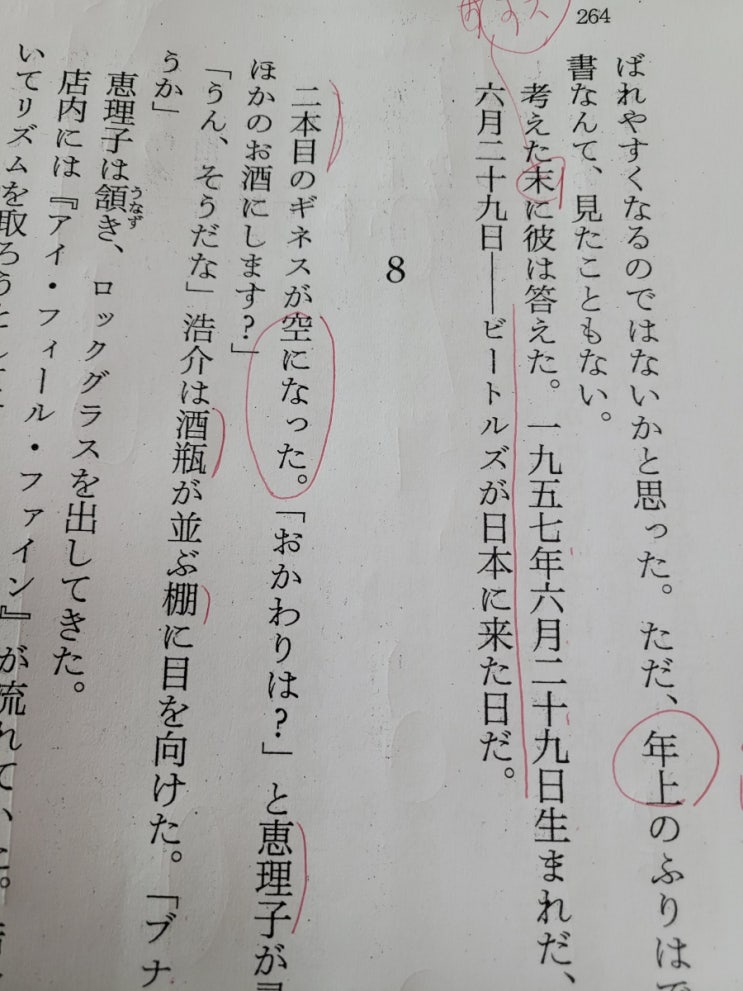 264
ばれやすくなるのではないかと思った。ただ、年上のふりはで
書なんて、見たこともない。
考えた末に彼は答えた。一九五七年六月二十九日生まれだ、
六月二十九日――ビートルズが日本に来た日だ。
8
二本目のギネスが空になった。「おかわりは?」と恵理子が
ほかのお酒にします?」
「うん、そうだな」浩介は酒瓶が並ぶ棚に目を向けた。「ブナ
うか」
恵理子は頷き、ロックグラスを出してきた。
うなず
店内には『アイ・フィール・ファイン』が流れて、
いてリズムを取ろうとして